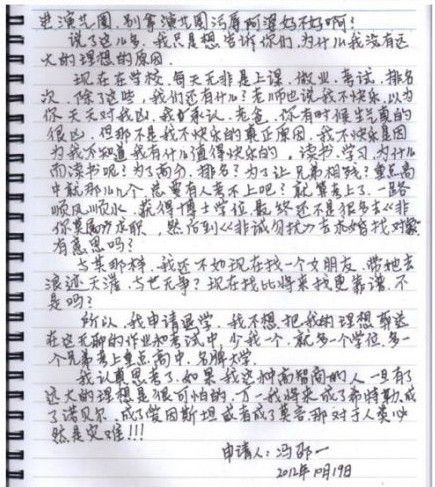 进演艺圈，别拿演艺圈活辱阿婆好不好啊！
说了这么多，我只是想告诉你们，为什么我没有远
大的理想的原因。
现在在学校，每天无非是上课、做业、考试、排名
次，除了这些，我们还有什么？老师也说我不快乐，以为
你天天对我凶，我承认，老爸，你有时候生气真的
很凶，但那不是我不快乐的真正原因，我不快乐是因
为我不知道我有什么值得快乐的，读书、学习，为什么
而读书呢？为了高分，排名？为了让兄弟相残？重点高
中就那几个，总要有人考不上吧？就算考上了，一路
顺风顺水，获得博士学位，最终还不是很多去《非
你莫属》求职，然后到《非诚勿扰》去求婚找对象
有意思吗？
与其那样，我还不如现在找一个女朋友，带她去
浪迹天涯，与世无争？现在找比将来找更靠谱，不
是吗？
所以，我申请退学，我不想把我的理想葬送
在这无聊的作业和考试中，少我一个，就多一个学位，多一
个兄弟考上重点高中，名牌大学。
我认真思考了，如果我这种高智商的人一旦有了
远大的理想是很可怕的，万一我将来成了希特勒，成
了诺贝尔，成了爱因斯坦或者成了莫言，那对于人类必
然是灾难！！！
申请人：冯邵一
2012年10月19日